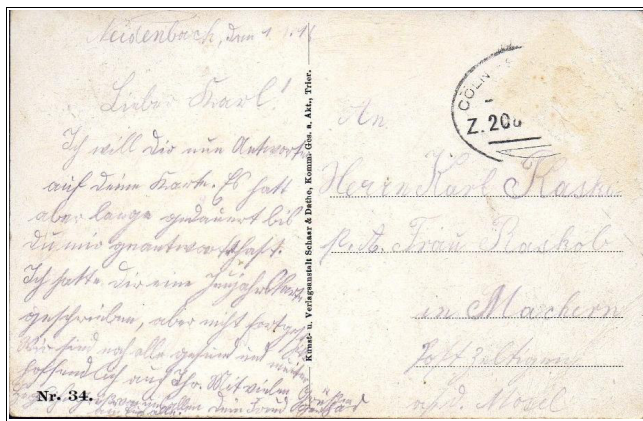 Neidenbach, den 1
Lieber Karl!
Ich will Dir nun Antworten
auf deine Karte. Es hatt
aber lange gedauert bis
Du mir geantwortet hast.
Ich hatte Dir eine Neujahrskarte
geschrieben, aber nicht
Wir sind noch alle gesund und
hoffendlich auch Ihr. Mit vielen Grüßen
dein Freund
Nr. 34.
Kunst- u. Verlagsanstalt Schaar & Dathe, Komm. Ges. a. Akt., Trier.
CÖLN
Z. 20
An
Herrn Karl
Frau Raskob
in Machern
Post Zeltingen
a/d. Mosel